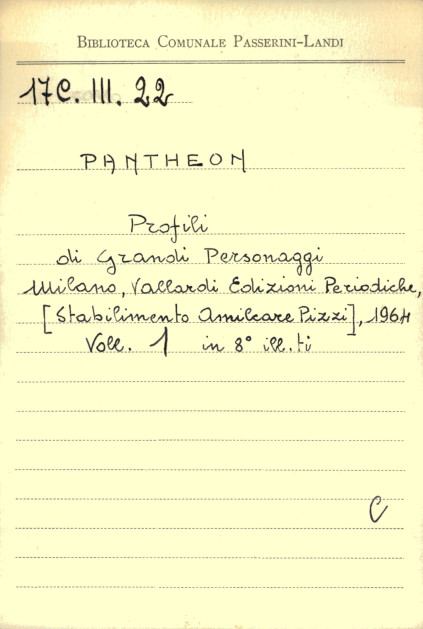 Biblioteca Comunale Passerini-Landi
17C. III. 22
PANTHEON
Profili
di Grandi Personaggi
Milano, Vallardi Edizioni Periodiche,
[Stabilimento Amilcare Pizzi], 1964
Voll. 1 in 8° ill.ti
C